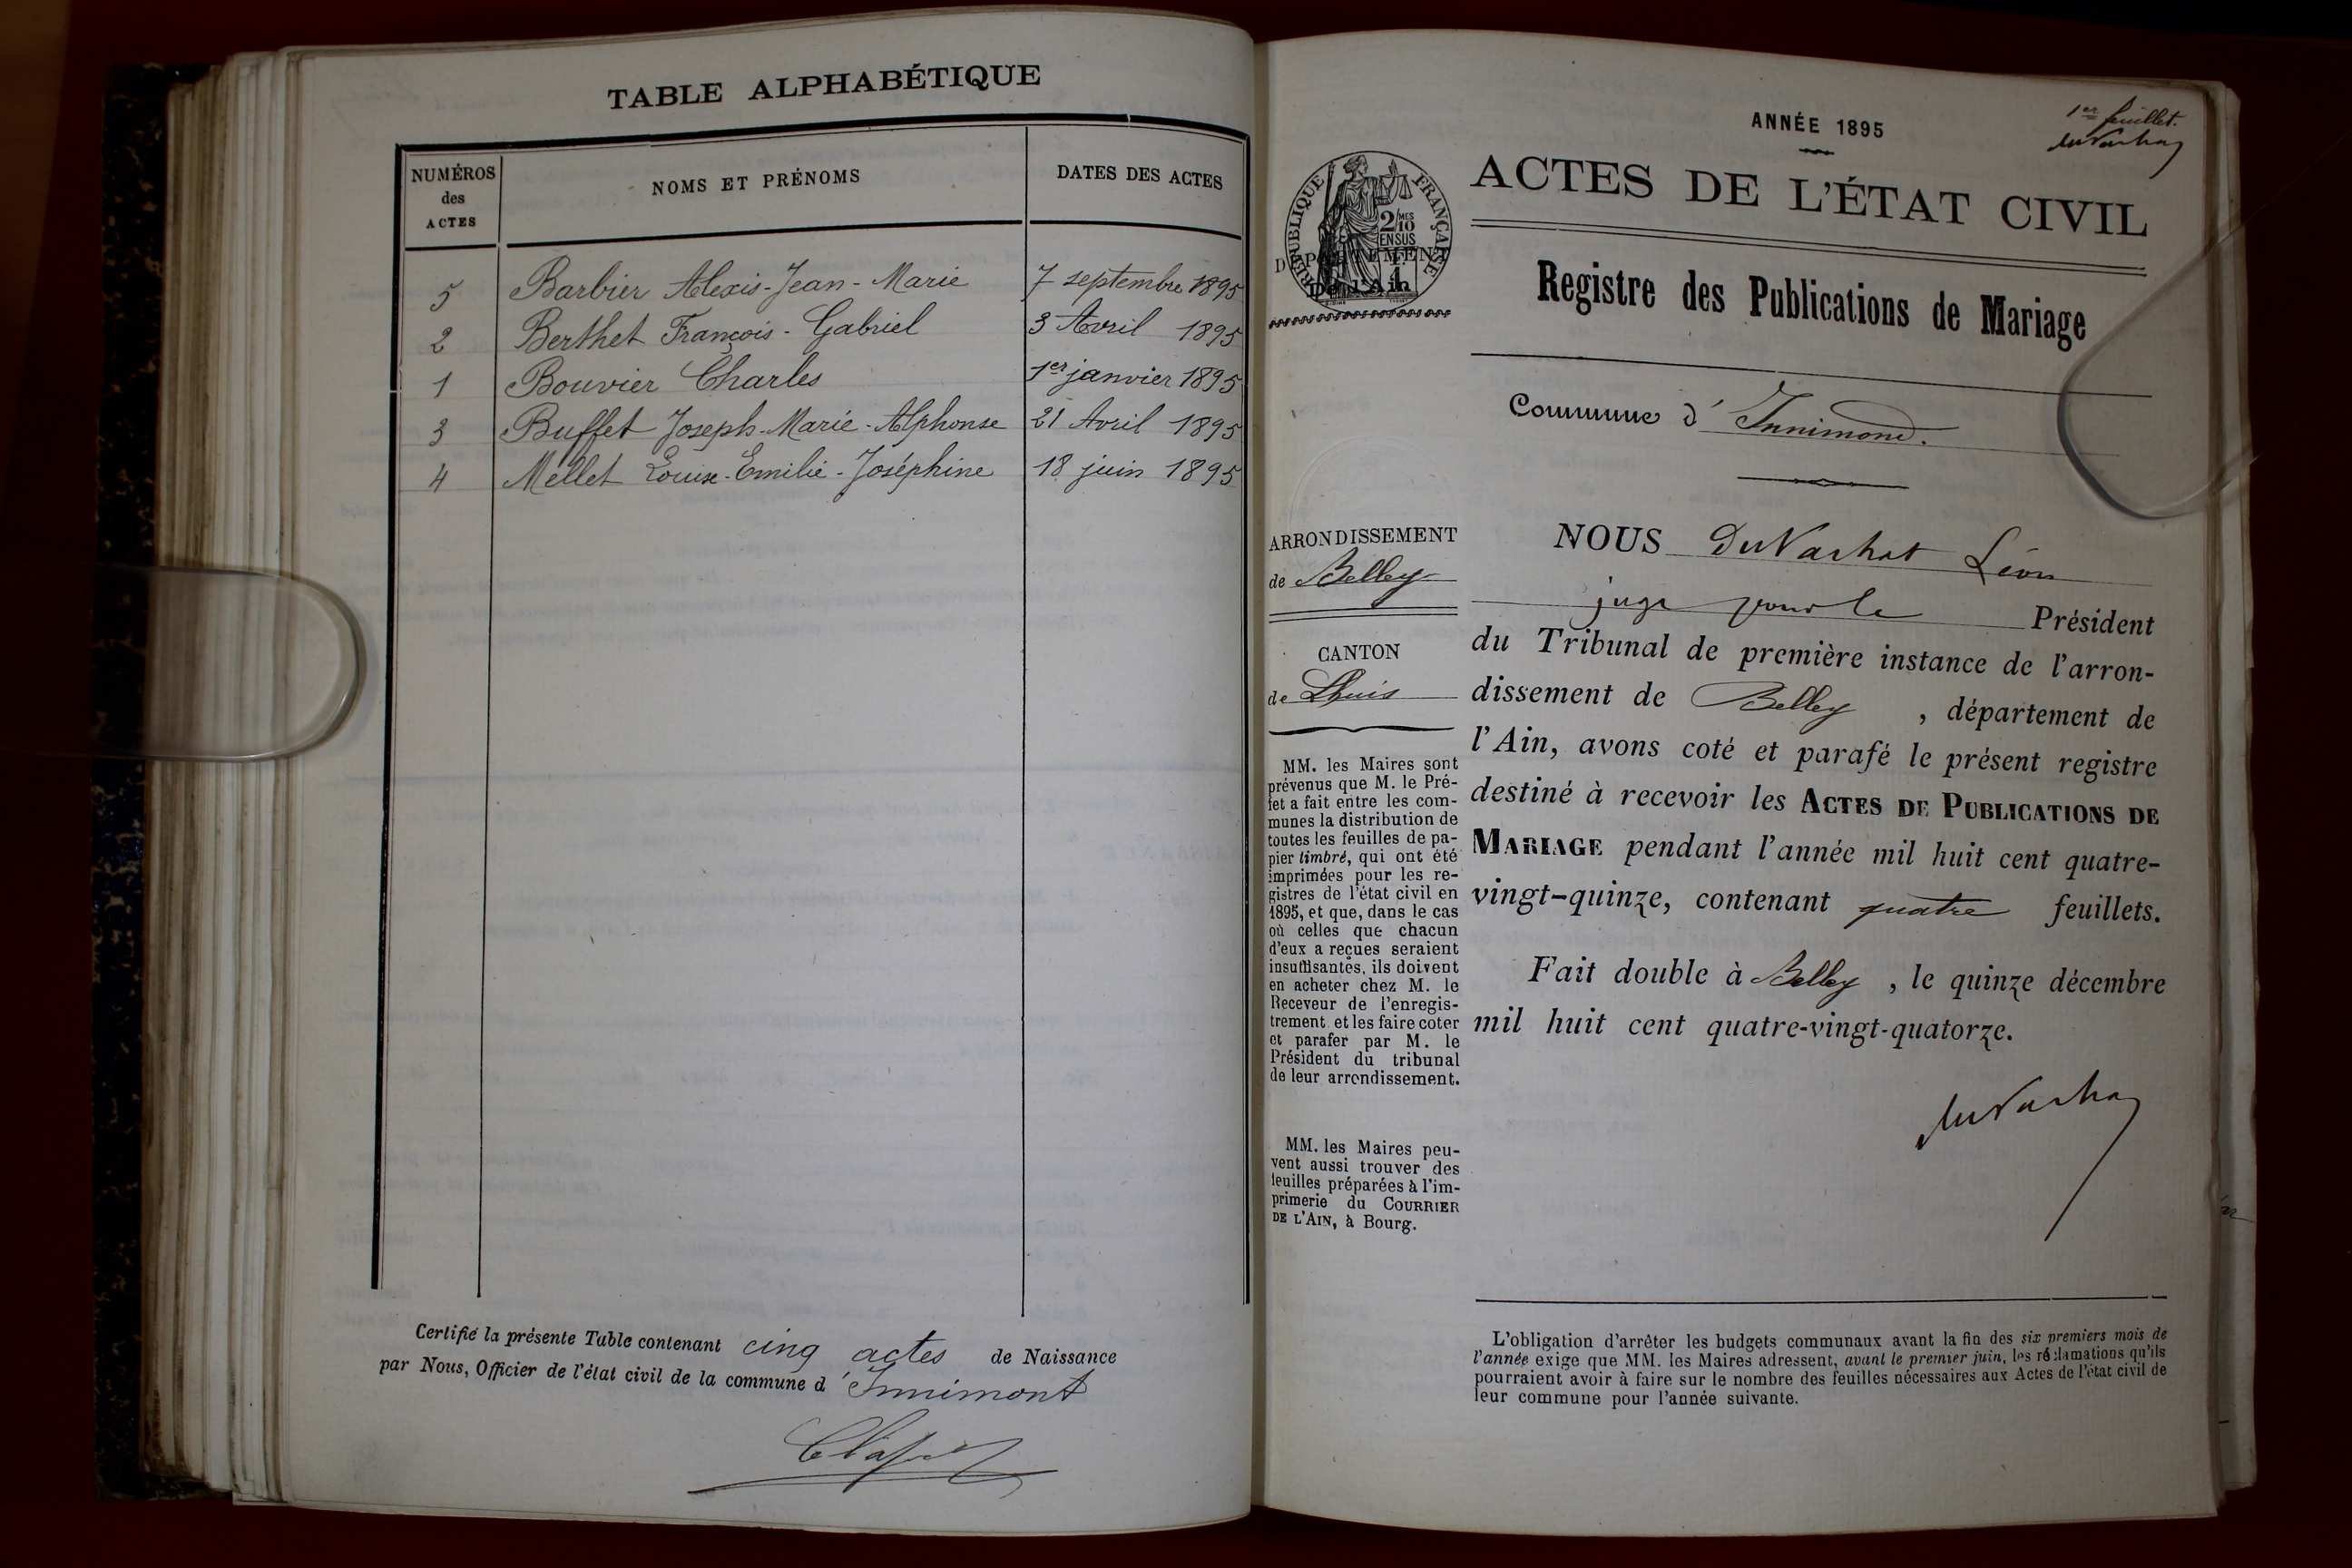 TABLE ALPHABÉTIQUE
NUMÉROS
des
ACTES
NOMS ET PRÉNOMS
DATES DES ACTES
5 Barbier Alexis-Jean-Marie 7 septembre 1895
2 Berthet François-Gabriel 3 Avril 1895
1 Bouvier Charles 1er janvier 1895
3 Buffet Joseph-Marie-Alphonse 21 Avril 1895
4 Mellet Louise-Emilie-Joséphine 18 juin 1895
Certifié la présente Table contenant cinq actes de Naissance
par Nous, Officier de l'état civil de la commune d'Innimont
1er feuillet.
ANNÉE 1895
RÉPUBLIQUE FRANÇAISE
2/10 MES
EN SUS
DÉPARTEMENT
De l'Ain
ACTES DE L'ÉTAT CIVIL
Registre des Publications de Mariage
Commune d'Innimond.
ARRONDISSEMENT
de Belley
CANTON
de Lhuis
MM. les Maires sont
prévenus que M. le Pré-
fet a fait entre les com-
munes la distribution de
toutes les feuilles de pa-
pier timbré, qui ont été
imprimées pour les re-
gistres de l'état civil en
1895, et que, dans le cas
où celles que chacun
d'eux a reçues seraient
insuffisantes, ils doivent
en acheter chez M. le
Receveur de l'enregis-
trement et les faire coter
et parafer par M. le
Président du tribunal
de leur arrondissement.
MM. les Maires peu-
vent aussi trouver des
feuilles préparées à l'im-
primerie du COURRIER
DE L'AIN, à Bourg.
NOUS DuVachat Léon
juge pour le Président
du Tribunal de première instance de l'arron-
dissement de Belley, département de
l'Ain, avons coté et parafé le présent registre
destiné à recevoir les ACTES DE PUBLICATIONS DE
MARIAGE pendant l'année mil huit cent quatre-
vingt-quinze, contenant quatre feuillets.
Fait double à Belley, le quinze décembre
mil huit cent quatre-vingt-quatorze.
L'obligation d'arrêter les budgets communaux avant la fin des six premiers mois de
l'année exige que MM. les Maires adressent, avant le premier juin, les réclamations qu'ils
pourraient avoir à faire sur le nombre des feuilles nécessaires aux Actes de l'état civil de
leur commune pour l'année suivante.